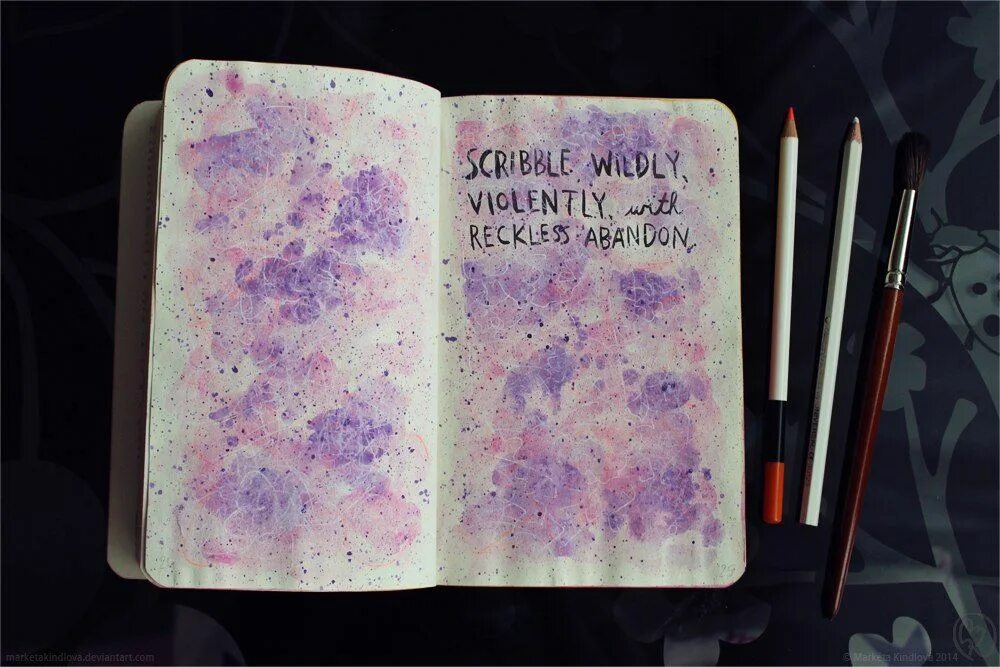 SCRIBBLE WILDLY,
VIOLENTLY, with
RECKLESS ABANDON.
marketakindlova.deviantart.com
© Marketa Kindlová 2014